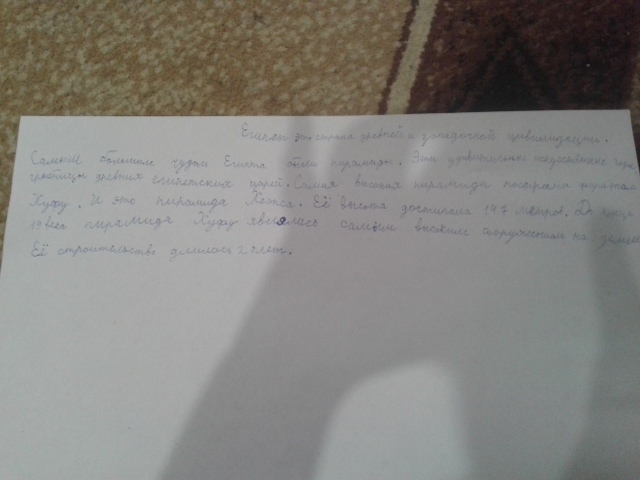 Египет это страна древней и загадочной цивилизации.
Самым большим чудом Египта были пирамиды. Эти удивительные искусственные горы
гробницы древних египетских царей. Самая высокая пирамида построена фараоном
Хуфу. И это пирамида Хеопса. Её высота достигала 147 метров. До конца
19 века пирамида Хуфу являлась самым высоким сооружением на земле.
Её строительство длилось 2 лет.